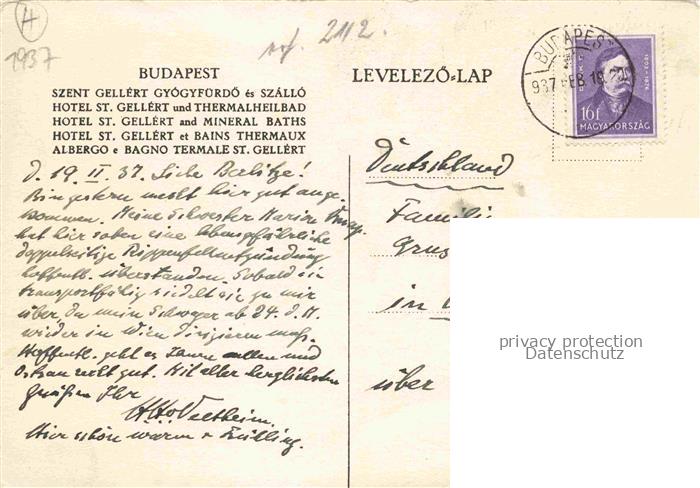 4
1937
ref. 2112.
BUDAPEST
SZENT GELLÉRT GYÓGYFÜRDŐ és SZÁLLÓ
HOTEL ST. GELLÉRT und THERMALHEILBAD
HOTEL ST. GELLÉRT and MINERAL BATHS
HOTEL ST. GELLÉRT et BAINS THERMAUX
ALBERGO e BAGNO TERMALE ST. GELLÉRT
LEVELEZŐ-LAP
BUDAPEST
937 FEB 19
16f
MAGYARORSZÁG
d. 19. II. 37. Liebe
Bin gestern nachts hier gut ange-
kommen. Meine Schwester
hat hier soeben eine lebensgefährliche
doppelseitige Rippenfellentzündung
hoffentl. überstanden. Sobald sie
transportfähig siedelt sie zu mir
über, da mein Schwager ab 24. d. M.
wieder in Wien dirigieren muss.
Hoffentl. geht es Ihnen allen und
recht gut. Mit aller herzlichsten
Grüßen Ihr
Veltheim.
Hier schön warm + Frühling.
Deutschland
Familie
in
über
privacy protection
Datenschutz